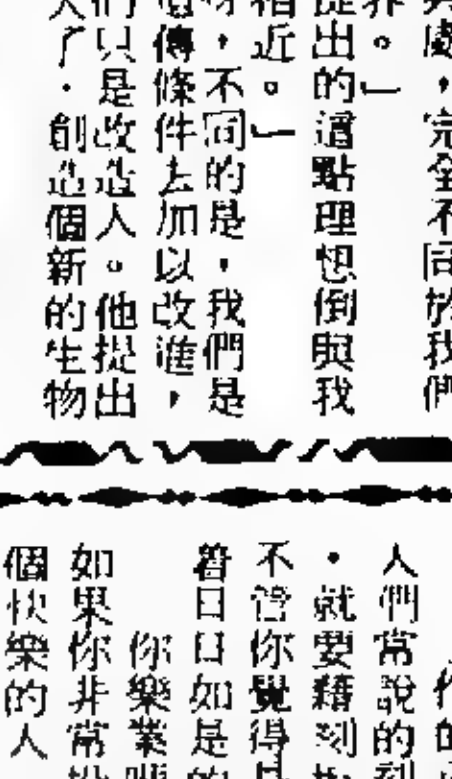 處，完全不同於我們
界。」
提出的這點理想倒與我
相近。」
，不同的是，我們是
遺傳條件去加以改進，
們只是改造人。他提出
了．創造個新的生物
人們常說的
．就要藉刻
不管你覺得
着日日如是的
你樂業
如果你非常
個快樂的人